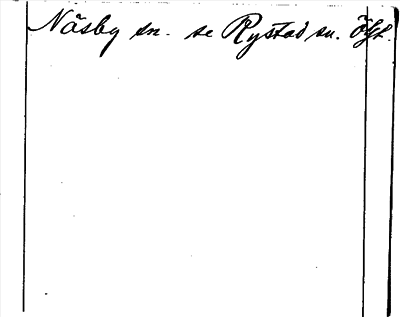 Näsby sn. se Rystad sn. Ögl.